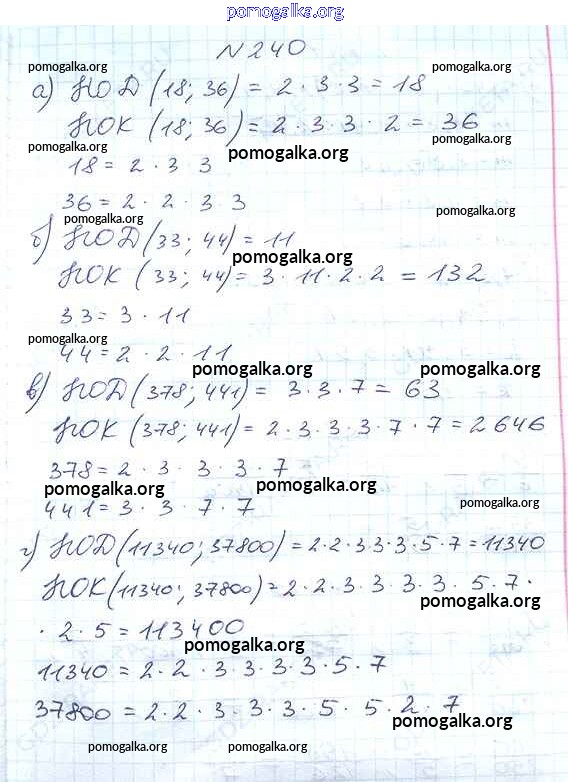 pomogalka.org
N 240
pomogalka.org pomogalka.org
а) НОД (18; 36) = 2 · 3 · 3 = 18
pomogalka.org
НОК (18; 36) = 2 · 3 · 3 · 2 = 36
pomogalka.org pomogalka.org
pomogalka.org
18 = 2 · 3 · 3
36 = 2 · 2 · 3 · 3
pomogalka.org pomogalka.org
б) НОД (33; 44) = 11
pomogalka.org
НОК (33; 44) = 3 · 11 · 2 · 2 = 132
33 = 3 · 11
pomogalka.org
44 = 2 · 2 · 11
pomogalka.org pomogalka.org
в) НОД (378; 441) = 3 · 3 · 7 = 63
pomogalka.org
НОК (378; 441) = 2 · 3 · 3 · 3 · 7 · 7 = 2646
378 = 2 · 3 · 3 · 3 · 7
pomogalka.org pomogalka.org
441 = 3 · 3 · 7 · 7
pomogalka.org
г) НОД (11340; 37800) = 2·2·3·3·3·5·7=11340
НОК (11340; 37800) = 2·2·3·3·3·3·5·7·
pomogalka.org
· 2 · 5 = 113400
pomogalka.org
11340 = 2 · 2 · 3 · 3 · 3 · 3 · 5 · 7
37800 = 2 · 2 · 3 · 3 · 3 · 5 · 5 · 2 · 7
pomogalka.org
pomogalka.org pomogalka.org